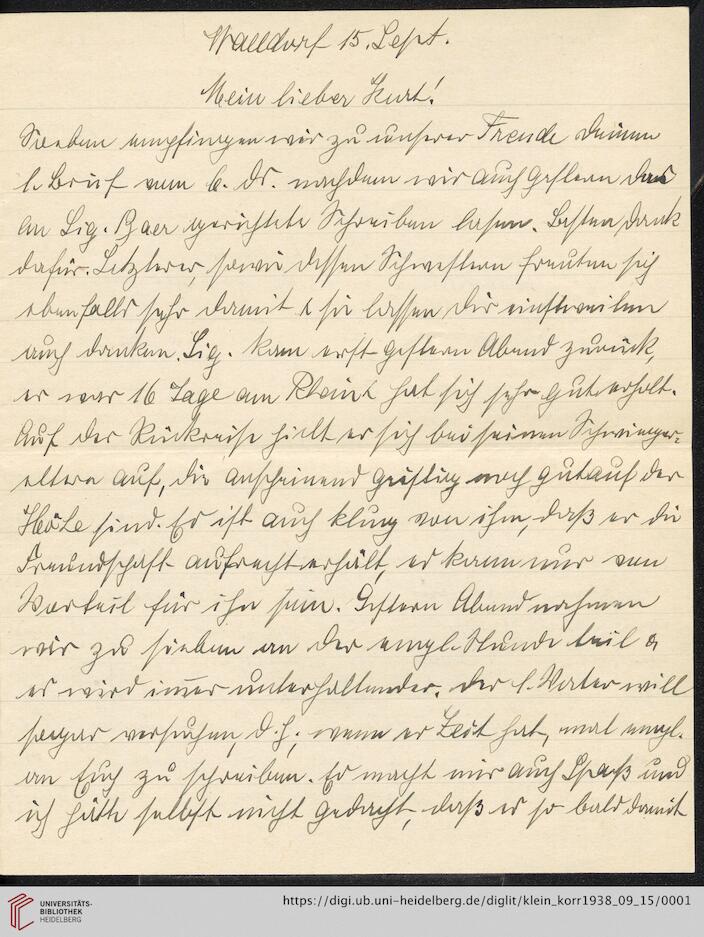 Walldorf 15. Sept.
Mein lieber Kurt!
Soeben empfingen wir zu unserer Freude Deinen
l. Brief vom 6. ds. nachdem wir auch gestern das
an Sig. Baer gerichtete Schreiben lasen. Besten Dank
dafür. Letzterer, sowie dessen Schwestern freuten sich
ebenfalls sehr damit & sie lassen Dir einstweilen
auch danken. Sig. kam erst gestern Abend zurück,
er war 16 Tage am Rhein & hat sich sehr gut erholt.
Auf der Rückreise hielt er sich bei seinen Schwieger-
eltern auf, die anscheinend geistig noch gut auf der
Höhe sind. Es ist auch klug von ihm, daß er die
Freundschaft aufrecht erhält, es kann nur von
Vorteil für ihn sein. Gestern Abend nahmen
wir zu sieben an der engl. Stunde teil &
es wird immer unterhaltender. Der l. Vater will
sogar versuchen, d. h., wenn er Zeit hat, mal engl.
an Euch zu schreiben. Es macht mir auch Spaß und
ich hätte selbst nicht gedacht, daß es so bald damit
UNIVERSITÄTS-
BIBLIOTHEK
HEIDELBERG
https://digi.ub.uni-heidelberg.de/diglit/klein_korr1938_09_15/0001